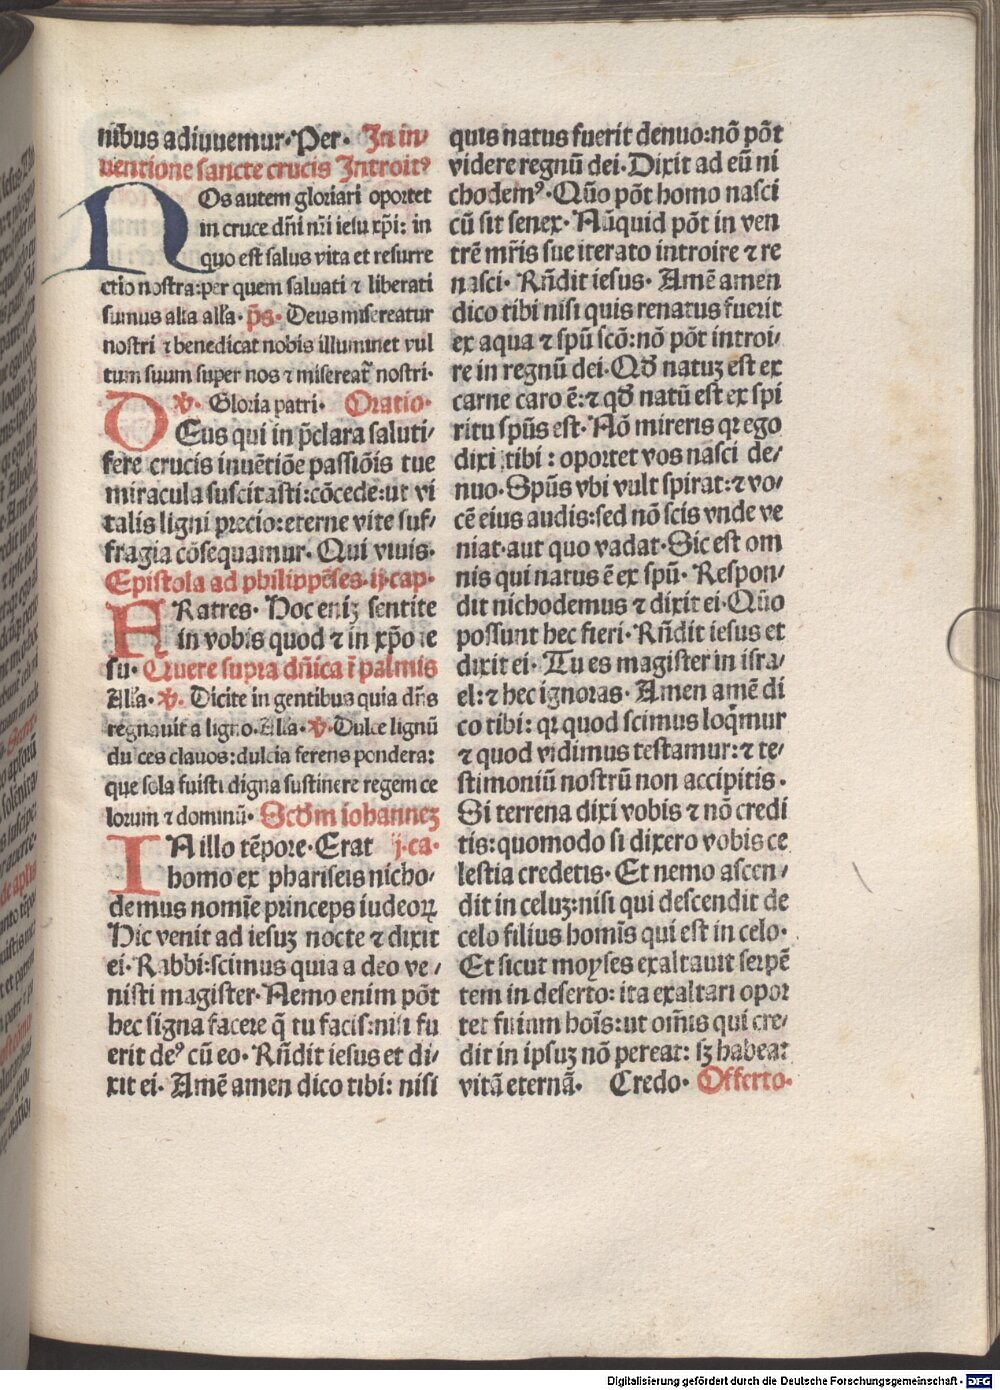 nibus adiuuemur·Per· In in⸗
uentione sancte crucis Introitꝰ
NOs autem gloriari oportet
in cruce dñi nr̃i iesu xp̃i: in
quo est salus vita et resurre
ctio nostra:per quem saluati ⁊ liberati
sumus alia all'a· p̃s· Deus misereatur
nostri ⁊ benedicat nobis illuminet vul
tum suum super nos ⁊ misereat᷑ nostri·
℣· Gloria patri· Oratio·
DEus qui in p̄clara saluti⸗
fere crucis inuētiōe passiōis tue
miracula suscitasti:cōcede:ut vi
talis ligni precio:eterne vite suf⸗
fragia cōsequamur· Qui viuis·
Epistola ad philippēses·ij·cap·
FRatres· Hoc eniz sentite
in vobis quod ⁊ in xp̄o ie
su· Quere supra dñica ī palmis
All'a· ℣· Dicite in gentibus quia dñs
regnauit a ligno. All'a·℣·Dulce lignū
dulces clauos:dulcia ferens pondera:
que sola fuisti digna sustinere regem ce
lorum ⁊ dominū· Scd̄m iohannez
IN illo tēpore·Erat j·ca·
homo ex phariseis nicho⸗
demus nomīe princeps iudeoꝝ
Hic venit ad iesuz nocte ⁊ dixit
ei· Rabbi:scimus quia a deo ve⸗
nisti magister· Nemo enim pōt
hec signa facere q̄ tu facis:nisi fu
erit deꝰ cū eo· Rñdit iesus et di⸗
xit ei· Amē amen dico tibi: nisi
quis natus fuerit denuo:nō pōt
videre regnū dei· Dixit ad eū ni
chodemꝰ· Quō pōt homo nasci
cū sit senex· Nūquid pōt in ven
trē mr̃is sue iterato introire ⁊ re
nasci· Rñdit iesus· Amē amen
dico tibi nisi quis renatus fuerit
ex aqua ⁊ spū scō: nō pōt introi⸗
re in regnū dei· Qd̄ natuz est ex
carne caro ē: ⁊ qd̄ natū est ex spi
ritu spūs est· Nō mireris qꝛ ego
dixi tibi : oportet vos nasci de⸗
nuo· Spūs vbi vult spirat: ⁊ vo⸗
cē eius audis: sed nō scis vnde ve
niat·aut quo vadat· Sic est om
nis qui natus ē ex spū· Respon⸗
dit nichodemus ⁊ dixit ei· Quō
possunt hec fieri· Rñdit iesus et
dixit ei· Tu es magister in isra⸗
el: ⁊ hec ignoras· Amen amē di
co tibi: qꝛ quod scimus loq̄mur
⁊ quod vidimus testamur: ⁊ te⸗
stimoniū nostrū non accipitis·
Si terrena dixi vobis ⁊ nō credi
tis: quomodo si dixero vobis ce
lestia credetis· Et nemo ascen⸗
dit in celuz: nisi qui descendit de
celo filius homīs qui est in celo·
Et sicut moyses exaltauit serpē
tem in deserto: ita exaltari opor
tet filium hoīs: ut om̄is qui cre⸗
dit in ipsuz nō pereat: sꝫ habeat
vitā eternā· Credo· Offerto·
Digitalisierung gefördert durch die Deutsche Forschungsgemeinschaft - DFG